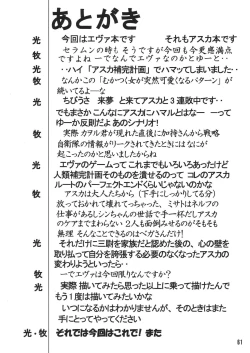 あとがき
光 今回はエヴァ本です それもアスカ本です
牧 セラムンの時もそうですが今回も今更感満点
ですよね ーでなんでエヴァなのかとゆーと‥
光 ‥ハイ「アスカ補完計画」でハマッてしまいました‥
牧 なんかこの「むかつく女が突然可愛くなるパターン」が
続いてるよーな
光 ちびうさ 来夢 と来てアスカと3連敗中です‥
でもまさか こんなにアスカにハマルとはなー ーって
ゆーか反則だよ あのシナリオ!
牧 実際カヲル君が現れた直後に加持さんから戦略
自衛隊の情報がリークされてきたときにはなにが
起こったのかと思いましたからねー
光 エヴァのゲームって これまでもいろいろあったけど
人類補完計画そのものを潰せるのって コレのアスカ
ルートのパーフェクトエンドくらいじゃないのかな
牧 アスカは大人たちから(下手にしっかりしてる分)
放っておかれて壊れていっちゃった、ミサトはネルフの
仕事があるしシンちゃんの世話で手一杯だしアスカ
のケアまでまわらない 2人も面倒みせるのがそもそも
無理 そんなことできるのはべガさんだけ!
光 それだけに三尉を家族だと認めた後の、心の壁を
取り払って自分を誇張する必要のなくなったアスカの
変わりようといったら・
牧 ーでエヴァは今回限りなんですか?
光 実際 描いてみたら思った以上に乗って描けたんで
もう1度は描いてみたいかな
いつになるかはわかりませんが、そのときはまた
手にとってやってください
光・牧 それでは今回はこれで! また
81